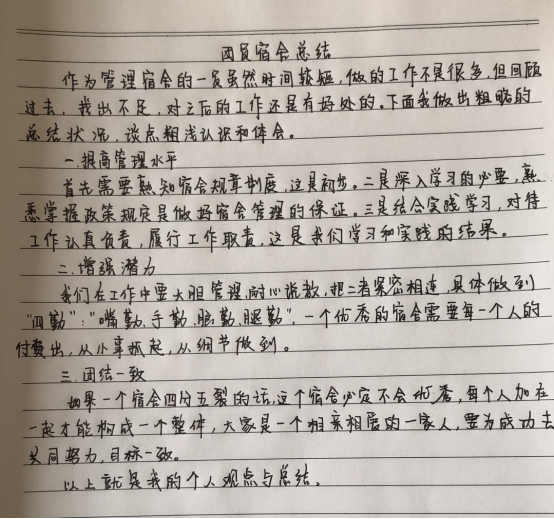 团员宿舍总结
作为管理宿舍的一员虽然时间较短,做的工作不是很多,但回顾
过去,找出不足,对之后的工作还是有好处的。下面我做出粗略的
总结状况,谈点粗浅认识和体会。
一.提高管理水平
首先需要熟知宿舍规章制度,这是初步。二是深入学习的必要,熟
悉掌握政策规定是做好宿舍管理的保证。三是结合实践学习,对待
工作认真负责,履行工作职责,这是我们学习和实践的结果。
二.增强潜力
我们在工作中要大胆管理,耐心说教,把二者紧密相连,具体做到
"四勤":"嘴勤、手勤、脑勤、腿勤",一个优秀的宿舍需要每一个人的
付费出,从小事抓起,从细节做到。
三.团结一致
如果一个宿舍四分五裂的话,这个宿舍必定不会优秀,每个人加在
一起才能构成一个整体,大家是一个相亲相爱的一家人,要为成功去
共同努力,目标一致。
以上就是我的个人观点与总结。